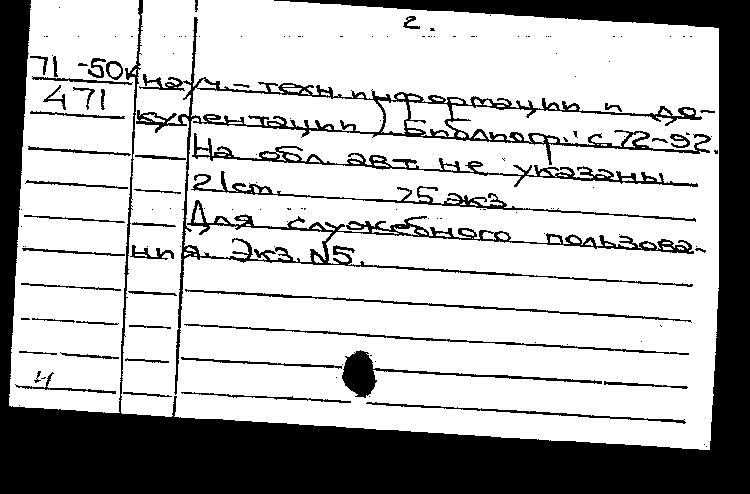 2.
71-50к науч.-техн. информации и до-
471 кументации). Библиогр.: с. 72-92.
На обл. авт. не указаны.
21 ст. 75 экз.
Для служебного пользова-
ния. Экз. №5.